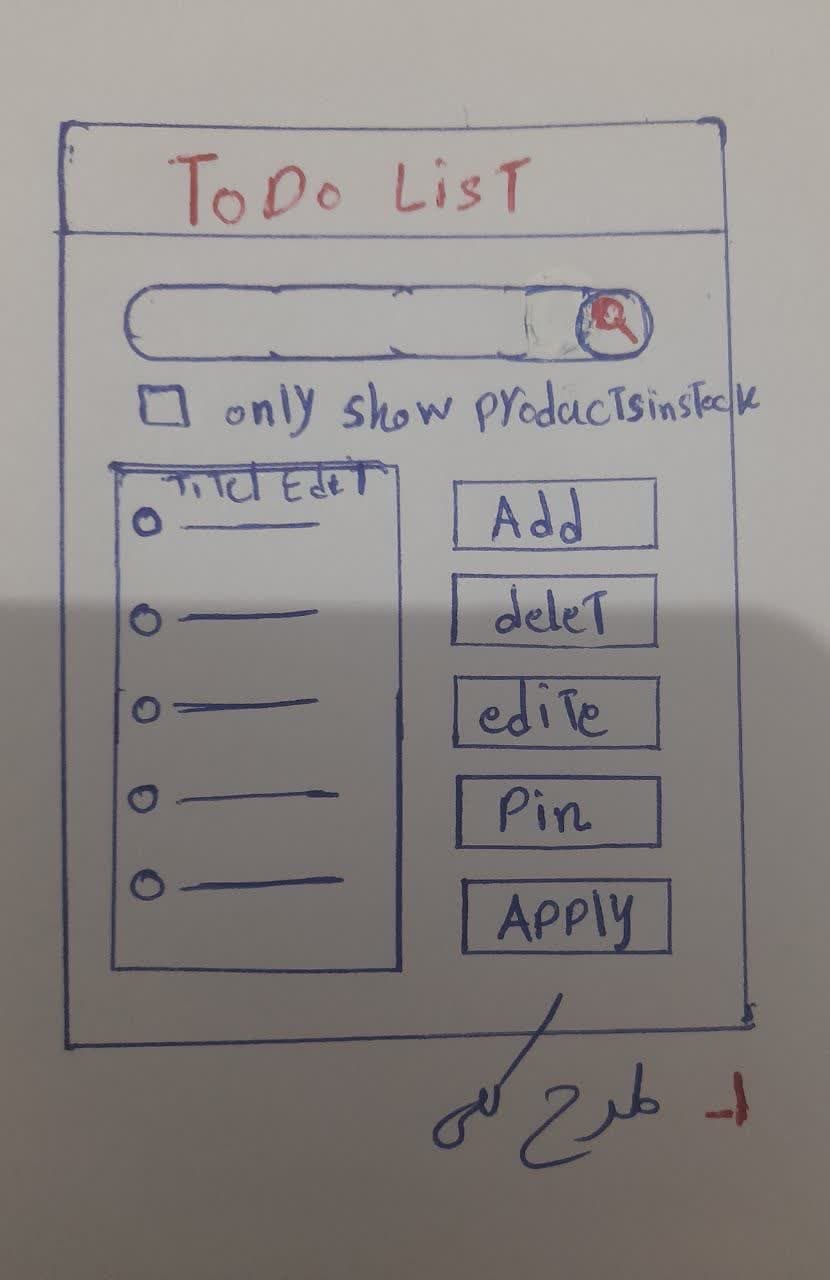 ToDo LisT
only show producTsinsTock
TiTel EdiT
Add
deleT
ediTe
Pin
APPly
1- طرح کلی